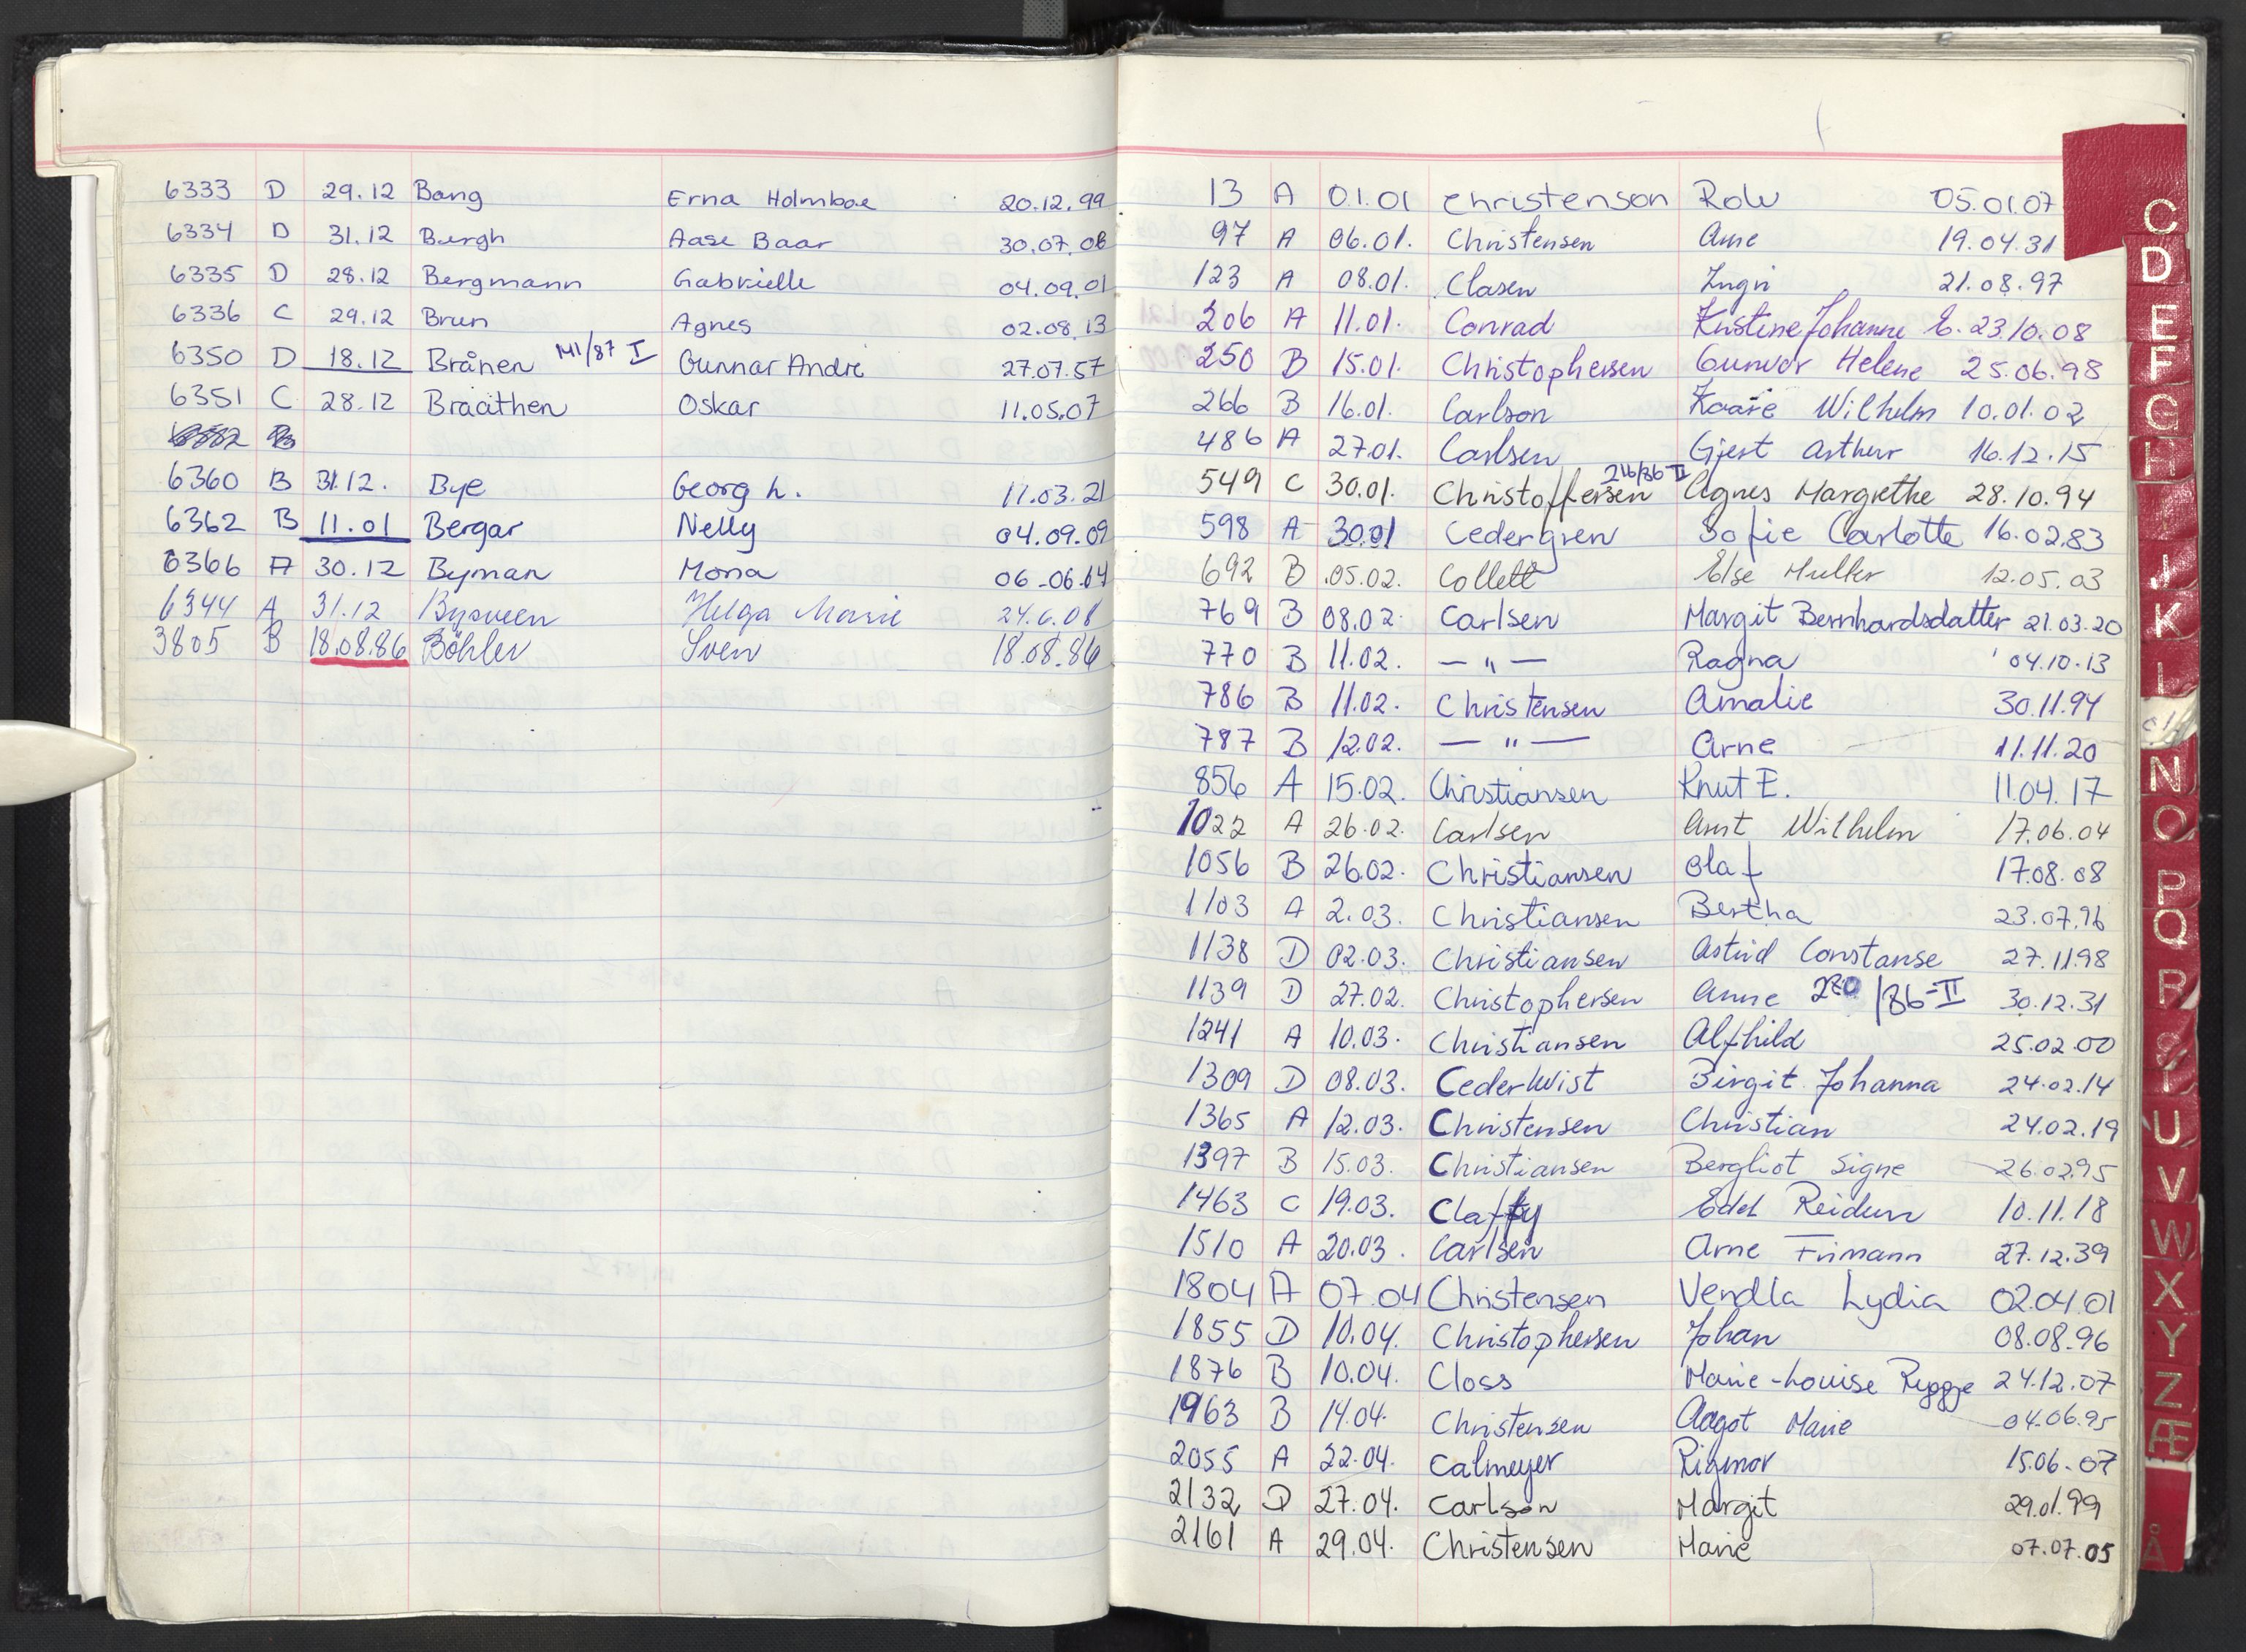 6333 D 29.12 Bang Erna Holmboe 20.12.99
6334 D 31.12 Bergh Aase Baar 30.07.08
6335 D 28.12 Bergmann Gabrielle 04.09.01
6336 C 29.12 Brun Agnes 02.08.13
6350 D 18.12 Brånen M1/87 I Gunnar André 27.07.57
6351 C 28.12 Braathen Oskar 11.05.07
6360 B 31.12. Bye Georg L. 17.03.21
6362 B 11.01 Bergar Nelly 04.09.09
6366 A 30.12 Byman Mona 06-06.64
6344 A 31.12 Bysveen Helga Marie 24.6.08
3805 B 18.08.86 Böhler Sven 18.08.86
13 A 01.01 Christenson Rolv 05.01.07
97 A 06.01. Christensen Arne 19.04.31
123 A 08.01. Clasen Yngvi 21.08.97
206 A 11.01. Conrad Kristine Johanne E. 23.10.08
250 B 15.01. Christophersen Gunvor Helene 25.06.98
266 B 16.01. Carlson Kaare Wilhelm 10.01.02
486 A 27.01. Carlsen Gjert Arthur 16.12.15
549 C 30.01. Christoffersen 216/86 II Agnes Margrethe 28.10.94
598 A 30.01 Cedergren Sofie Carlotte 16.02.83
692 B .05.02. Collett Else Muller 12.05.03
769 B 08.02. Carlsen Margit Bernhardsdatter 21.03.20
770 B 11.02. — " — Ragna 04.10.13
786 B 11.02. Christensen Amalie 30.11.94
787 B 12.02. — " — Arne 11.11.20
856 A 15.02. Christiansen Knut E. 11.04.17
1022 A 26.02. Carlsen Arnt Wilhelm 17.06.04
1056 B 26.02. Christiansen Olaf 17.08.08
1103 A 2.03. Christiansen Bertha 23.07.96
1138 D 02.03. Christiansen Astrid Constanse 27.11.98
1139 D 27.02. Christophersen Anne 280/86-II 30.12.31
1241 A 10.03. Christiansen Alfhild 25.02.00
1309 D 08.03. Cederkvist Birgit Johanna 24.02.14
1365 A 12.03. Christensen Christian 24.02.19
1397 B 15.03. Christiansen Bergliot Signe 26.02.95
1463 C 19.03. Claffy Edel Reidun 10.11.18
1510 A 20.03. Carlsen Arne Frimann 27.12.39
1804 A 07.04 Christensen Vendla Lydia 02.04.01
1855 D 10.04. Christophersen Johan 08.08.96
1876 B 10.04. Closs Marie-Louise Rygge 24.12.07
1963 B 14.04. Christensen Aagot Marie 04.06.95
2055 A 22.04. Calmeyer Rigmor 15.06-07
2132 D 27.04. Carlson Margit 29.01.99
2161 A 29.04. Christensen Marie 07.07.05
C
D
E
F
G
H
J
K
L
N
O
P
Q
R
S
T
U
V
W
X
Y
Z
Æ
Å